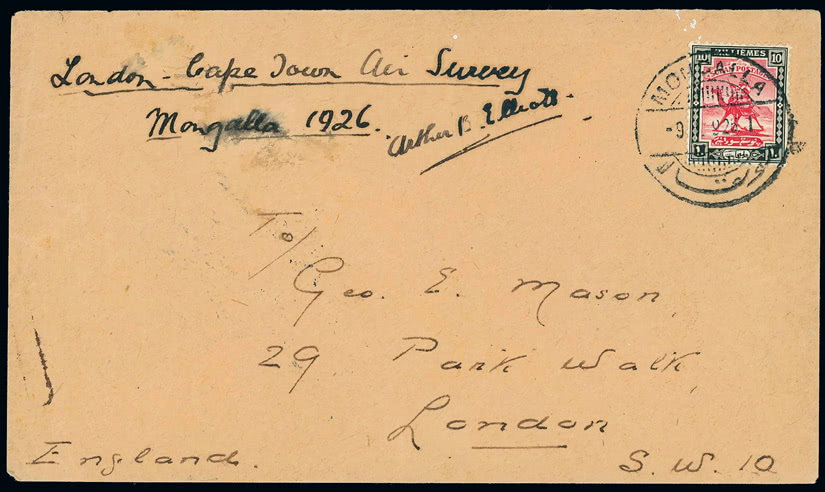 London - Cape Town Air Survey
Mongalla 1926.
Arther B. Elliott.
10 MILLIEMES 10
POSTAGE
MONGALLA
To/
Geo. E. Mason
29 Park Walk
London
England. S. W. 10